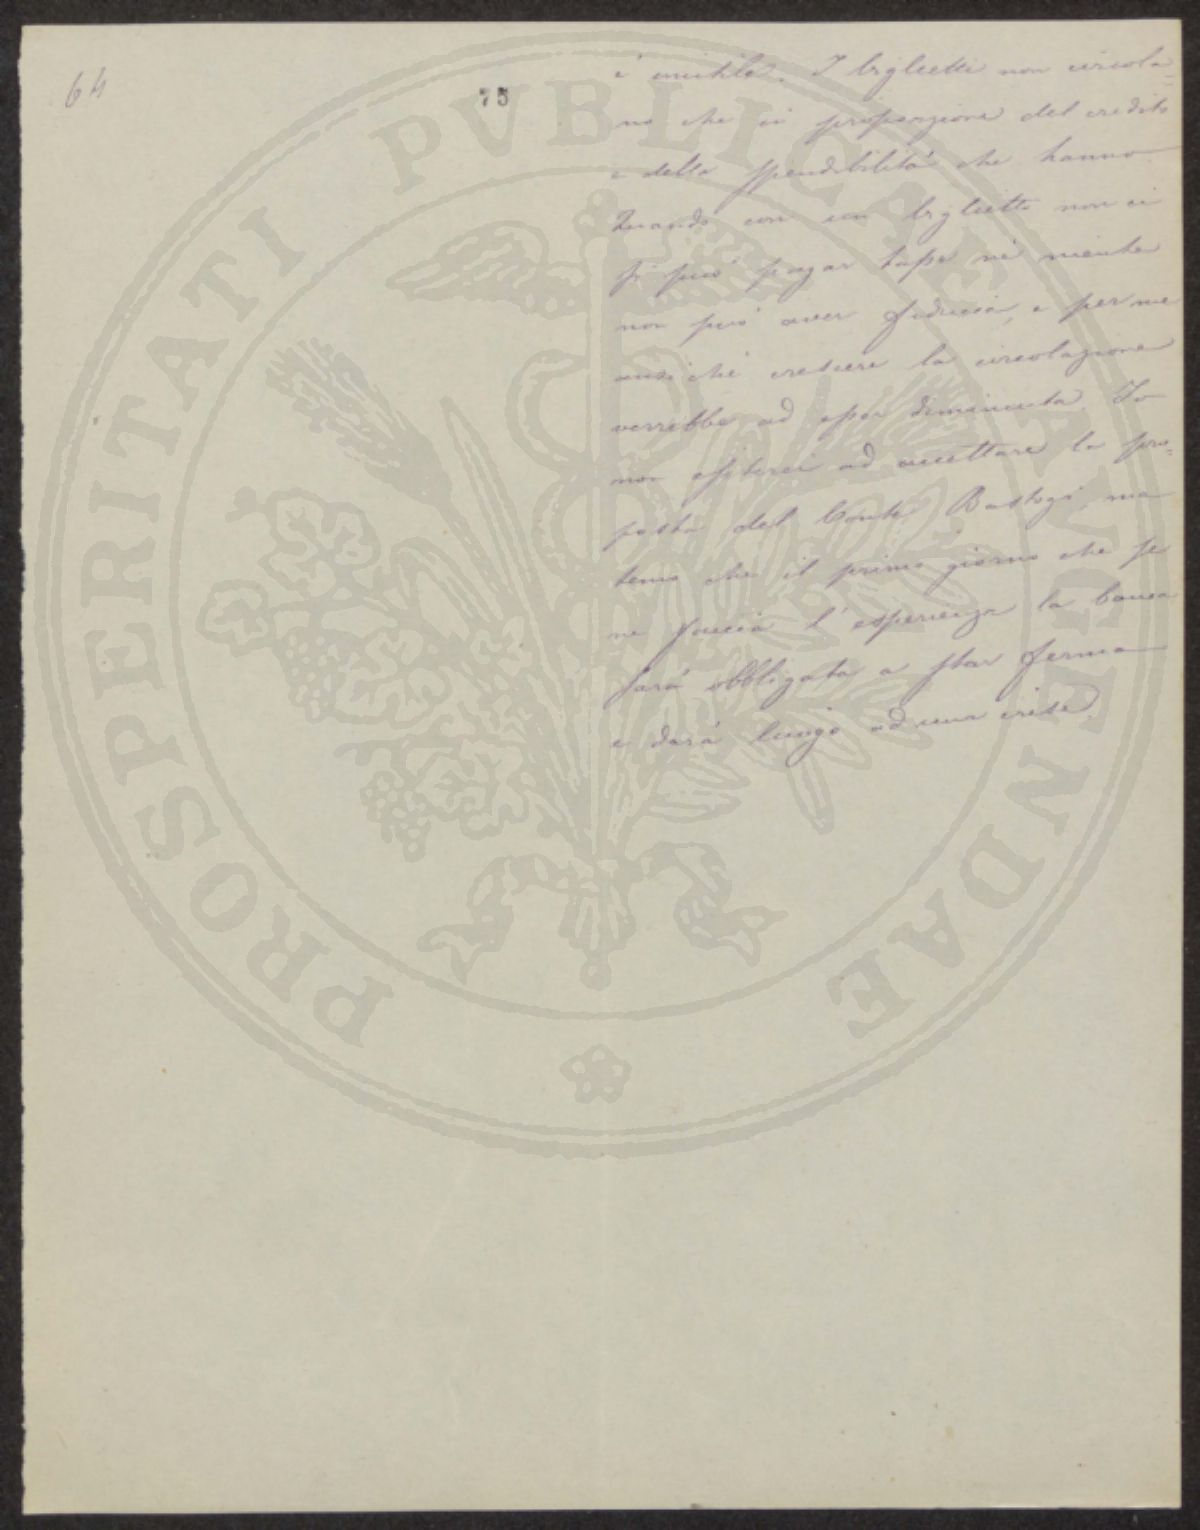 64
75
è inutile. I biglietti non circola=
no che in proporzione del credito
e della spendibilità che hanno
Quando con un biglietto non ci
si può pagar tasse nè niente
non può aver fiducia, e per me
anzi che crescere la circolazione
verrebbe ad esser diminuita. Io
non esiterei ad accettare la pro=
posta del Conte Bastogi, ma
temo che il primo giorno che se
ne faccia l'esperienza la banca
sarà obbligata a star ferma
e darà luogo ad una crise.
PROSPERITATI PVBLICAE AVGENDAE